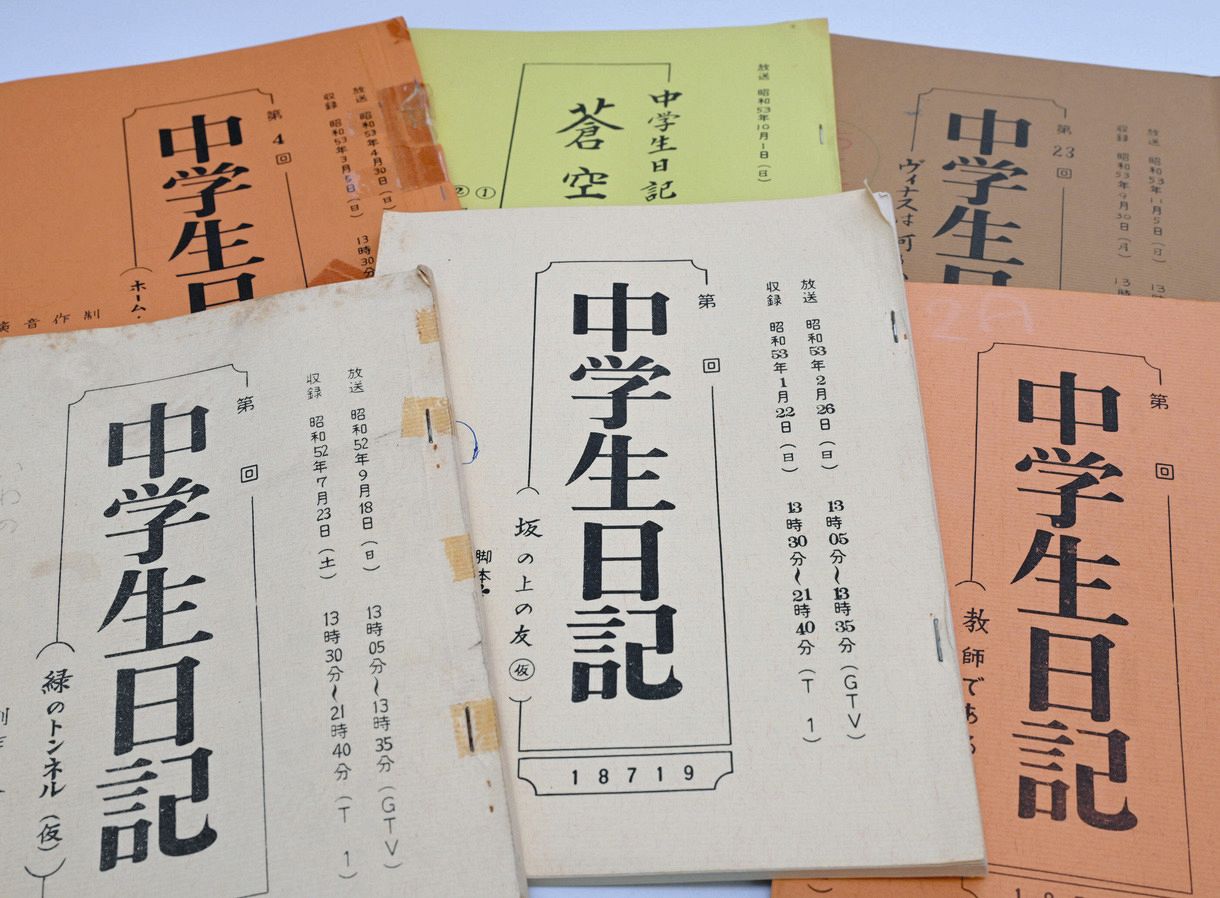 放送 昭和53年4月30日(日)
収録 昭和53年3月5日(日) 13時30分
第4回
中学生日
(ホーム・
制作音演
放送 昭和53年10月1日(日)
中学生日記
蒼空
①
②
放送 昭和53年11月5日(日) 13
収録 昭和53年9月30日(月) 13時
第23回
中学生日
ヴィナスは可
放送 昭和52年9月18日(日) 13時05分~13時35分(GTV)
収録 昭和52年7月23日(土) 13時30分~21時40分(T 1)
第 回
中学生日記
(緑のトンネル(仮))
放送 昭和53年2月26日(日) 13時05分~13時35分(GTV)
収録 昭和53年1月22日(日) 13時30分~21時40分(T 1)
第 回
中学生日記
(坂の上の友㋕
脚本
18719
2A
第 回
中学生日記
(教師である